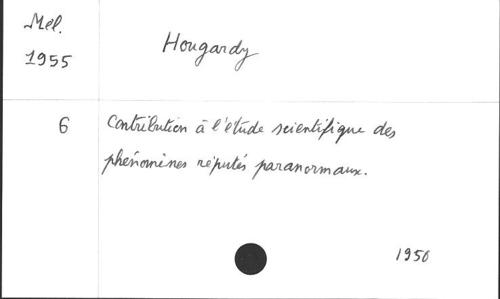 Mél.
1955
Hougardy
6
Contribution à l'étude scientifique des
phénomènes réputés paranormaux.
1956